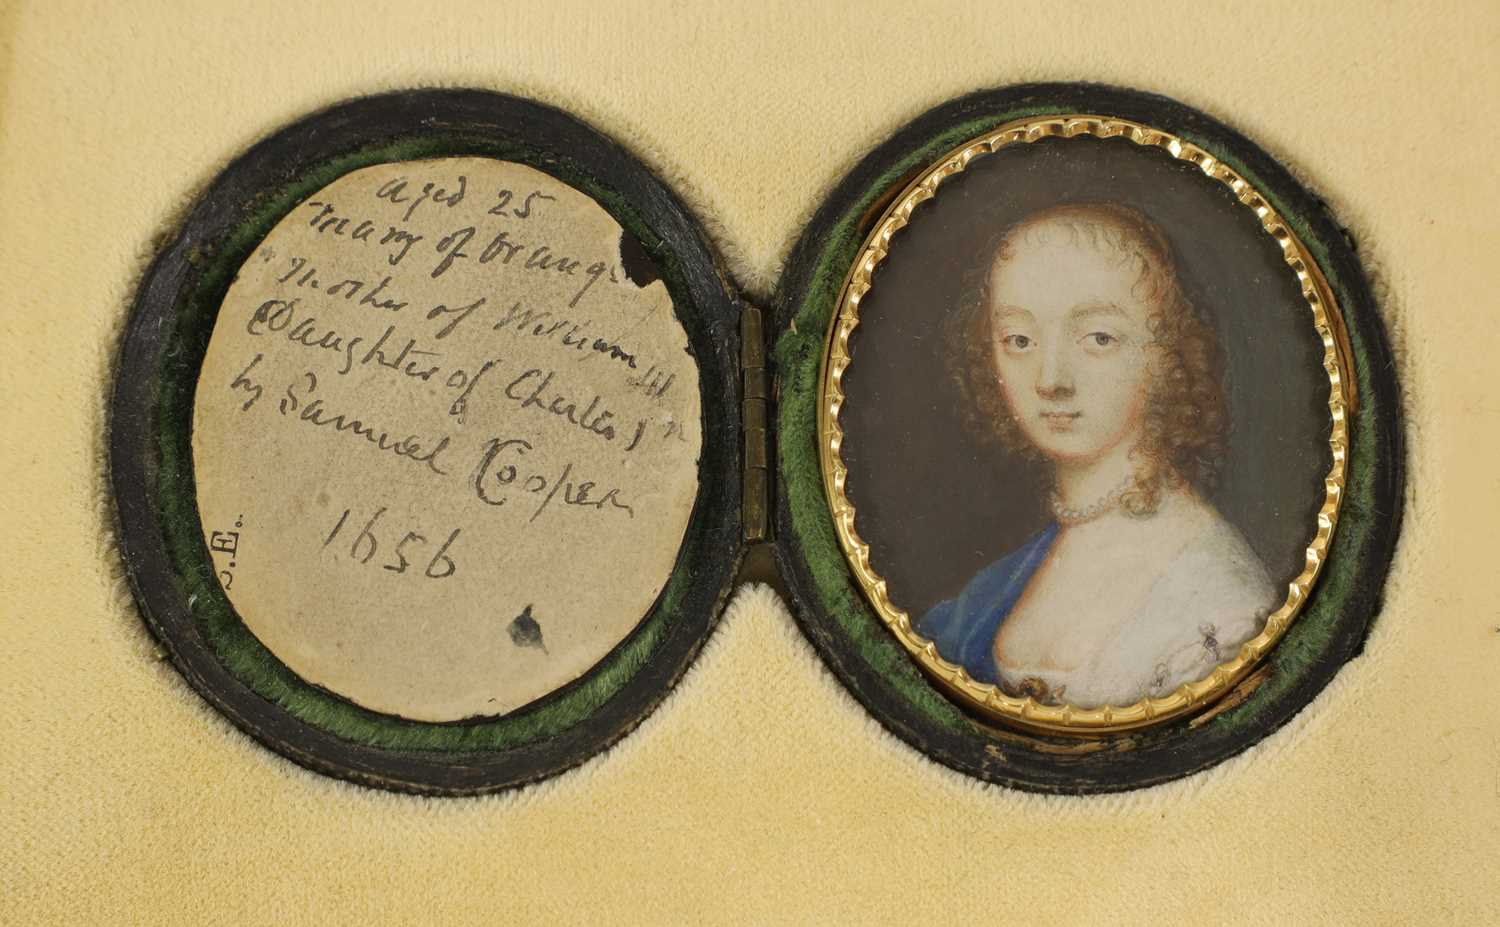 aged 25
Mary of Orange
Mother of William III
Daughter of Charles 1st
by Samuel Cooper
1656
S.E.